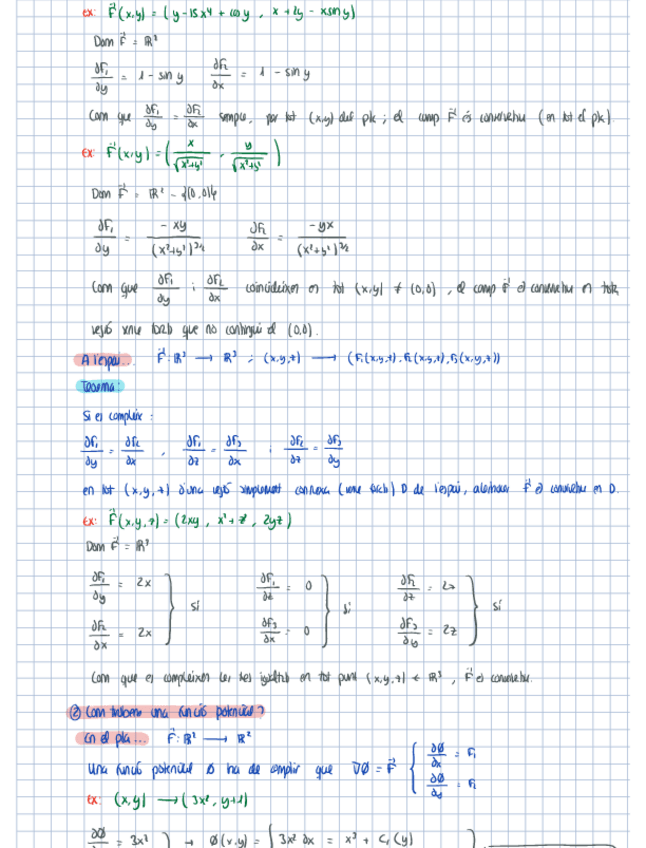 ex: F⃗(x,y) = (y-15x⁴ + cos y , x + 2y - x sin y)
Dom F⃗ = ℝ²
∂F₁/∂y = 1 - sin y   ∂F₂/∂x = 1 - sin y
Com que ∂F₁/∂y = ∂F₂/∂x sempre, per tot (x,y) del pla ; el camp F⃗ és conservatiu (en tot el pla)
ex: F⃗(x,y) = (x/√(x²+y²) , y/√(x²+y²))
Dom F⃗ = ℝ² - {(0,0)}
∂F₁/∂y = -xy/(x²+y²)^(3/2)   ∂F₂/∂x = -yx/(x²+y²)^(3/2)
Com que ∂F₁/∂y i ∂F₂/∂x coincideixen en tot (x,y) ≠ (0,0) , el camp F⃗ és conservatiu en tota
regió sense forats que no contingui el (0,0).
A l'espai... F⃗: ℝ³ → ℝ³ ; (x,y,z) → (F₁(x,y,z), F₂(x,y,z), F₃(x,y,z))
Teorema:
Si es compleix :
∂F₁/∂y = ∂F₂/∂x , ∂F₁/∂z = ∂F₃/∂x i ∂F₂/∂z = ∂F₃/∂y
en tot (x,y,z) d'una regió simplement connexa (sense forats) D de l'espai, aleshores F⃗ és conservatiu en D.
Ex: F⃗(x,y,z) = (2xy , x² + z² , 2yz)
Dom F⃗ = ℝ³
∂F₁/∂y = 2x   ∂F₁/∂z = 0   ∂F₂/∂z = 2z
} sí   } sí   } sí
∂F₂/∂x = 2x   ∂F₃/∂x = 0   ∂F₃/∂y = 2z
Com que es compleixen les tres igualtats en tot punt (x,y,z) ∈ ℝ³ , F⃗ és conservatiu.
② Com trobem una funció potencial?
En el pla... F⃗: ℝ² → ℝ²
Una funció potencial Ø ha de complir que ∇Ø = F⃗ { ∂Ø/∂x = F₁
∂Ø/∂y = F₂
Ex: (x,y) → (3x² , y+1)
∂Ø/∂x = 3x² } → Ø(x,y) = ∫ 3x² dx = x³ + C₁(y)